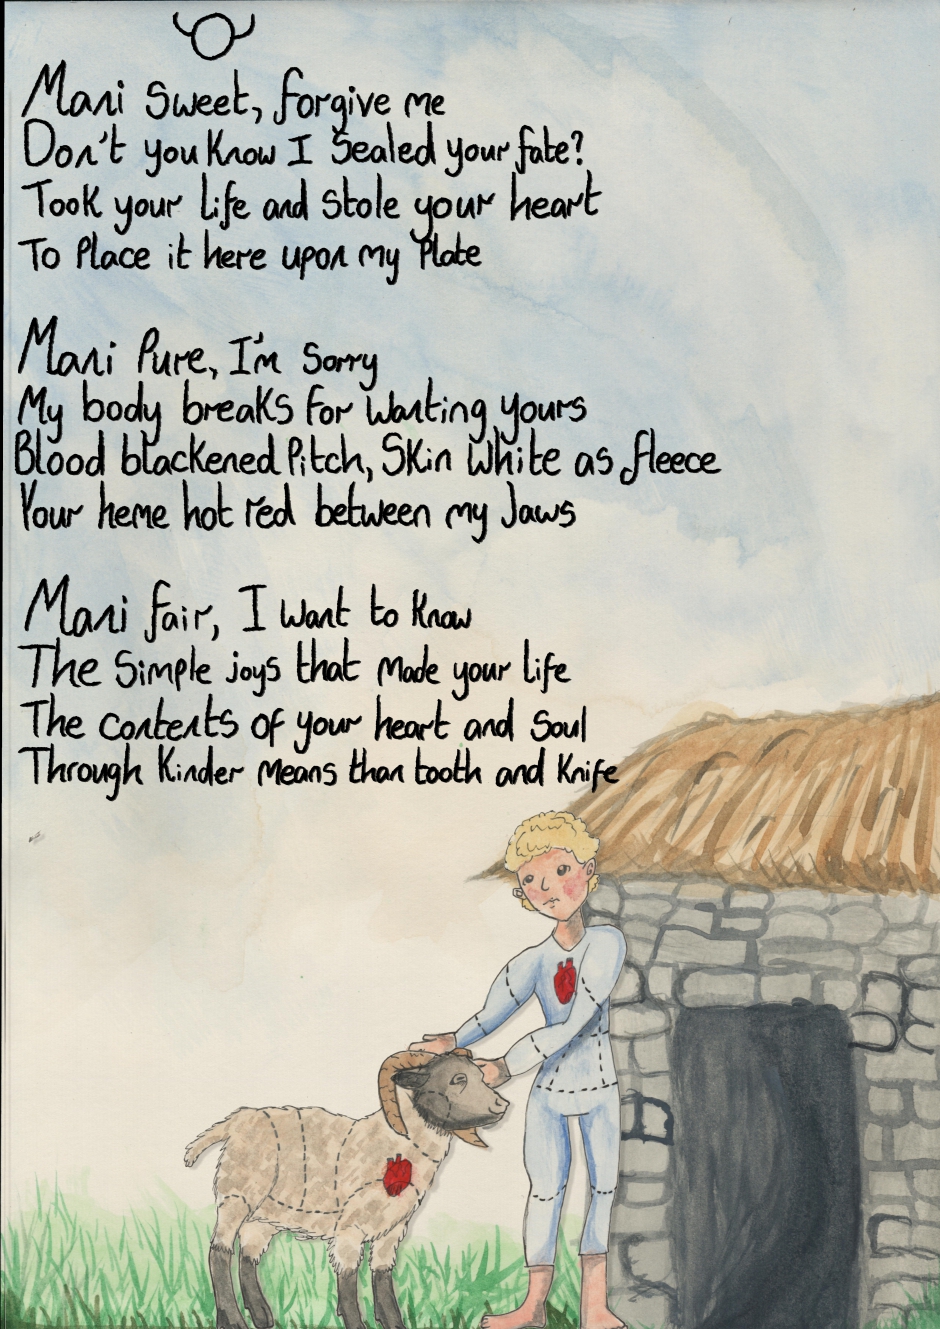 Mani Sweet, forgive me
Don't you Know I Sealed your fate?
Took your life and stole your heart
To Place it here upon my Plate
Mani Pure, I'm Sorry
My body breaks for wanting yours
Blood blackened Pitch, Skin White as fleece
Your heme hot red between my Jaws
Mani fair, I want to Know
The Simple joys that Made your life
The contents of your heart and Soul
Through Kinder Means than tooth and Knife